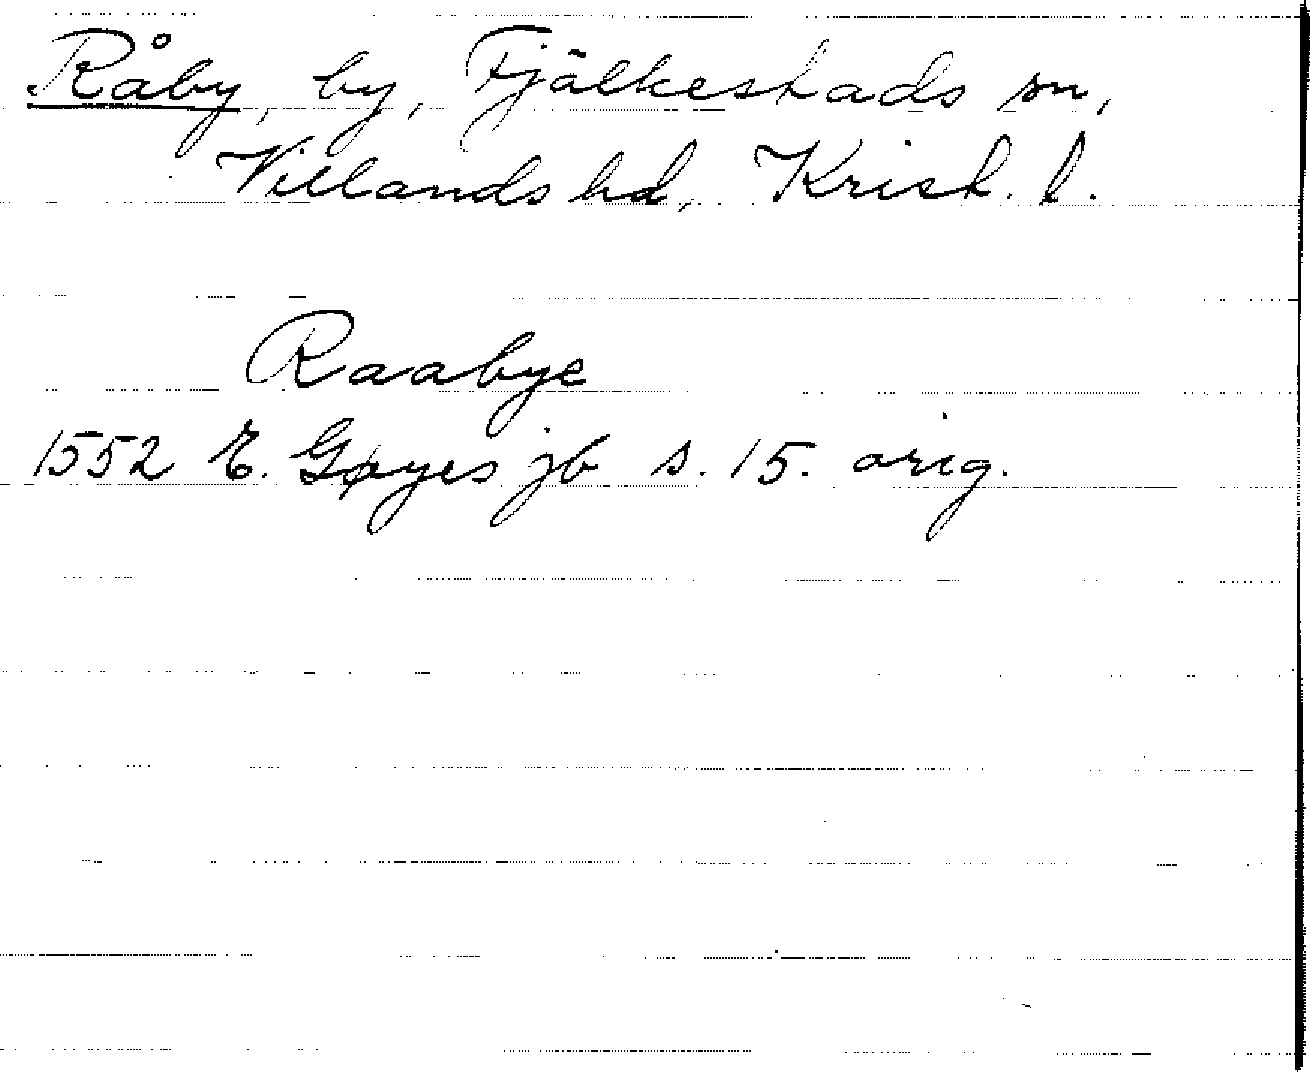 Råby, by, Fjälkestads sn,
Villands hd, Krist. l.
Raabye
1552 E. Gøyes jb s. 15. orig.